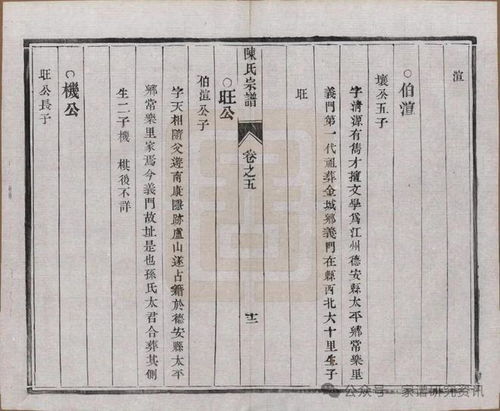 渲
○伯渲
壤公五子
字清源有儁才擅文學爲江州德安縣太平鄉常樂里
義門第一代祖葬金城鄉義門在縣西北六十里生子
旺
陳氏宗譜
卷之五
十二
○旺公
伯渲公子
字天相隨父遊南康隱跡廬山遂占籍於德安縣太平
鄉常樂里家焉今義門故址是也孫氏太君合葬其側
生二子機 棋後不詳
○機公
旺公長子
公众号·家谱研究资讯